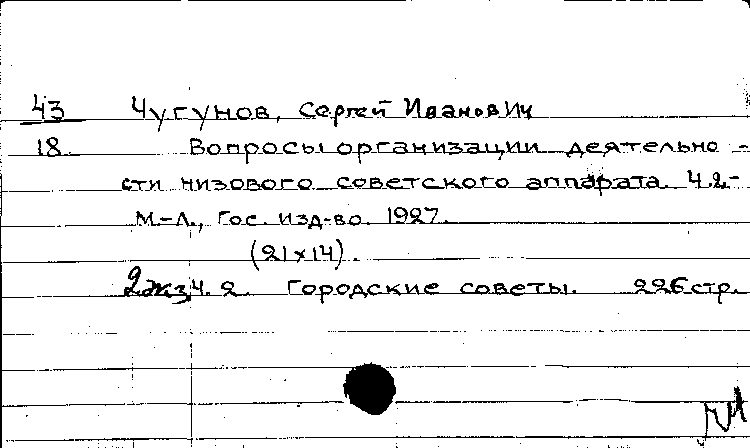 43 Чугунов, Сергей Иванович
18 Вопросы организации деятельно-
сти низового советского аппарата. Ч.2.-
М.-Л., Гос. изд-во. 1927.
(21x14).
2экз. Ч. 2. Городские советы. 226 стр.